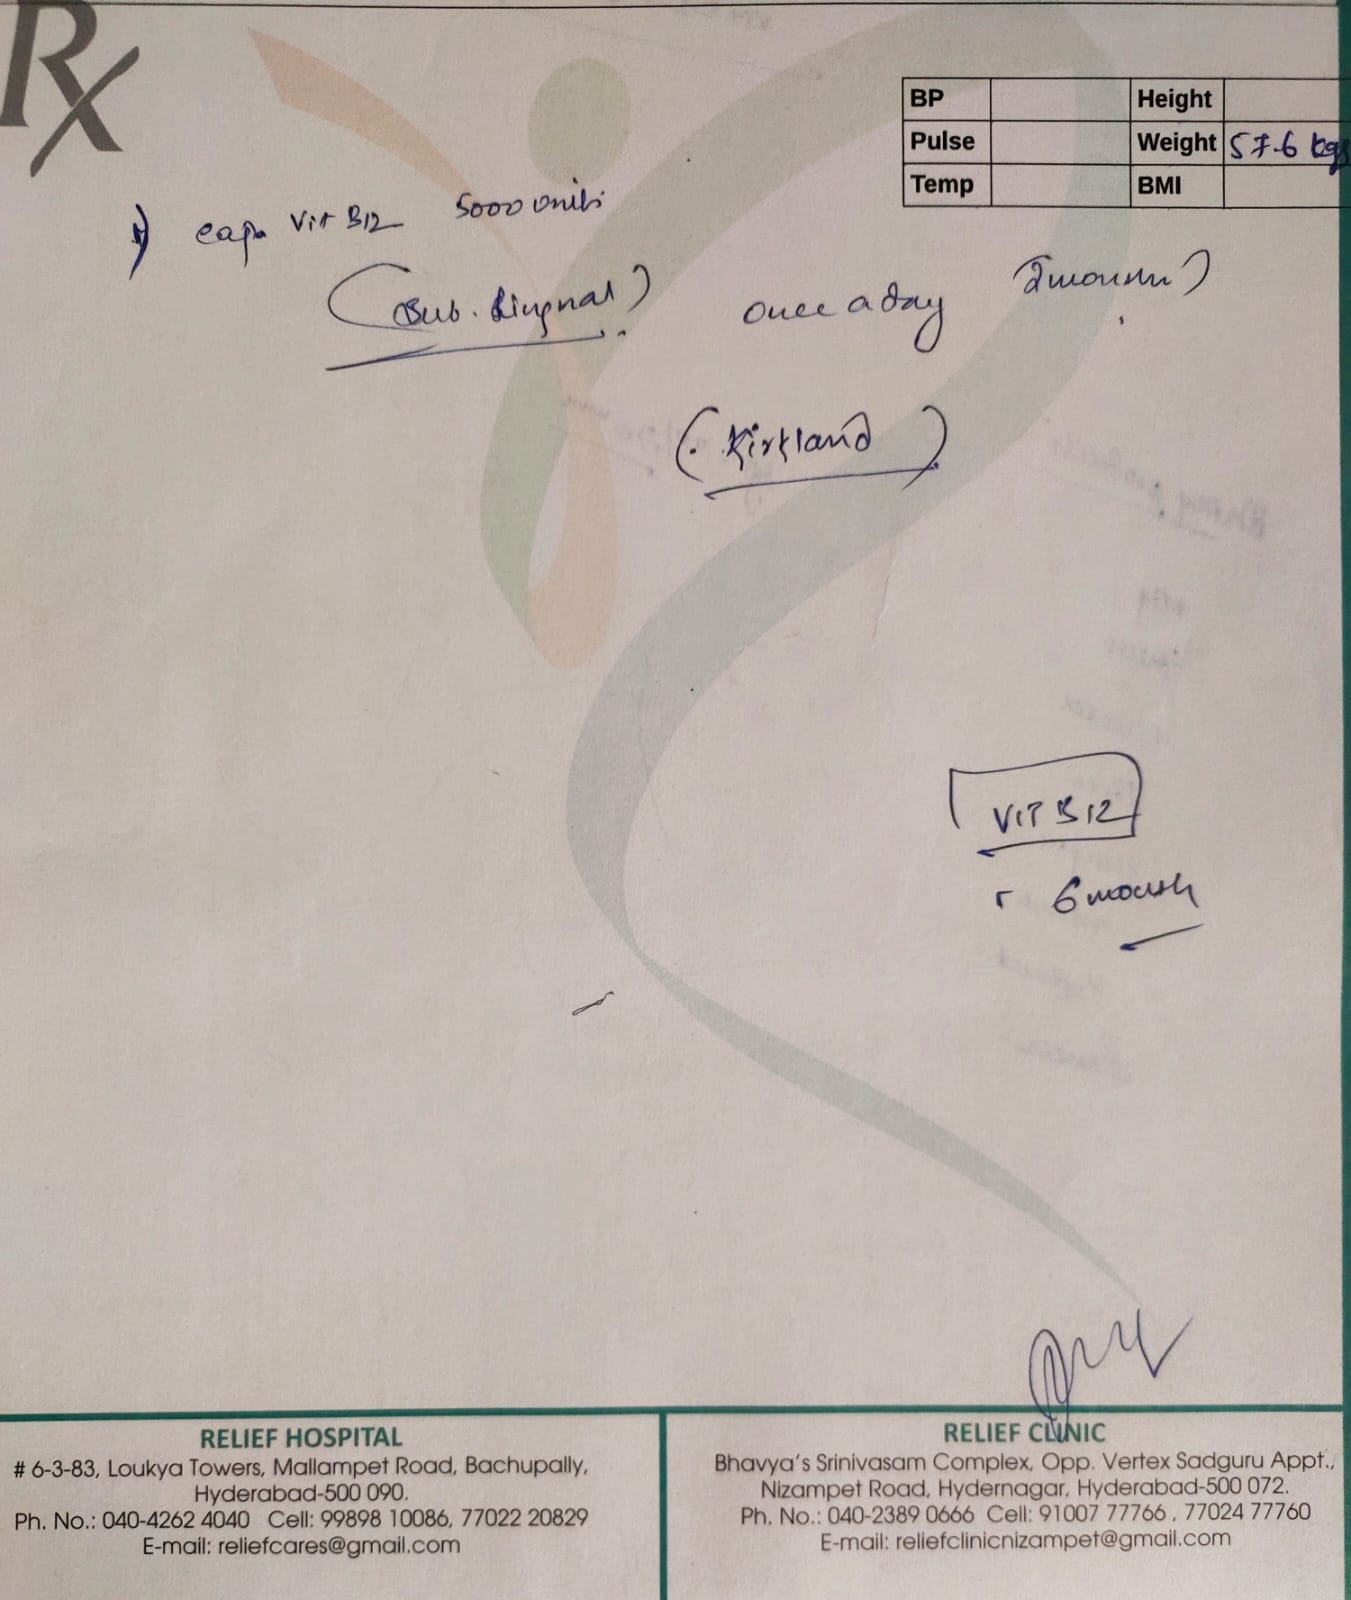 Rx
BP Height
Pulse Weight 57.6 kgs
Temp BMI
1) cap. Vit B12 5000 units
(Sub. Lingual) once a day 2 month)
(Kirkland)
VIT B12
6 month
RELIEF HOSPITAL
# 6-3-83, Loukya Towers, Mallampet Road, Bachupally,
Hyderabad-500 090.
Ph. No.: 040-4262 4040 Cell: 99898 10086, 77022 20829
E-mail: reliefcares@gmail.com
RELIEF CLINIC
Bhavya's Srinivasam Complex, Opp. Vertex Sadguru Appt.,
Nizampet Road, Hydernagar, Hyderabad-500 072.
Ph. No.: 040-2389 0666 Cell: 91007 77766 , 77024 77760
E-mail: reliefclinicnizampet@gmail.com